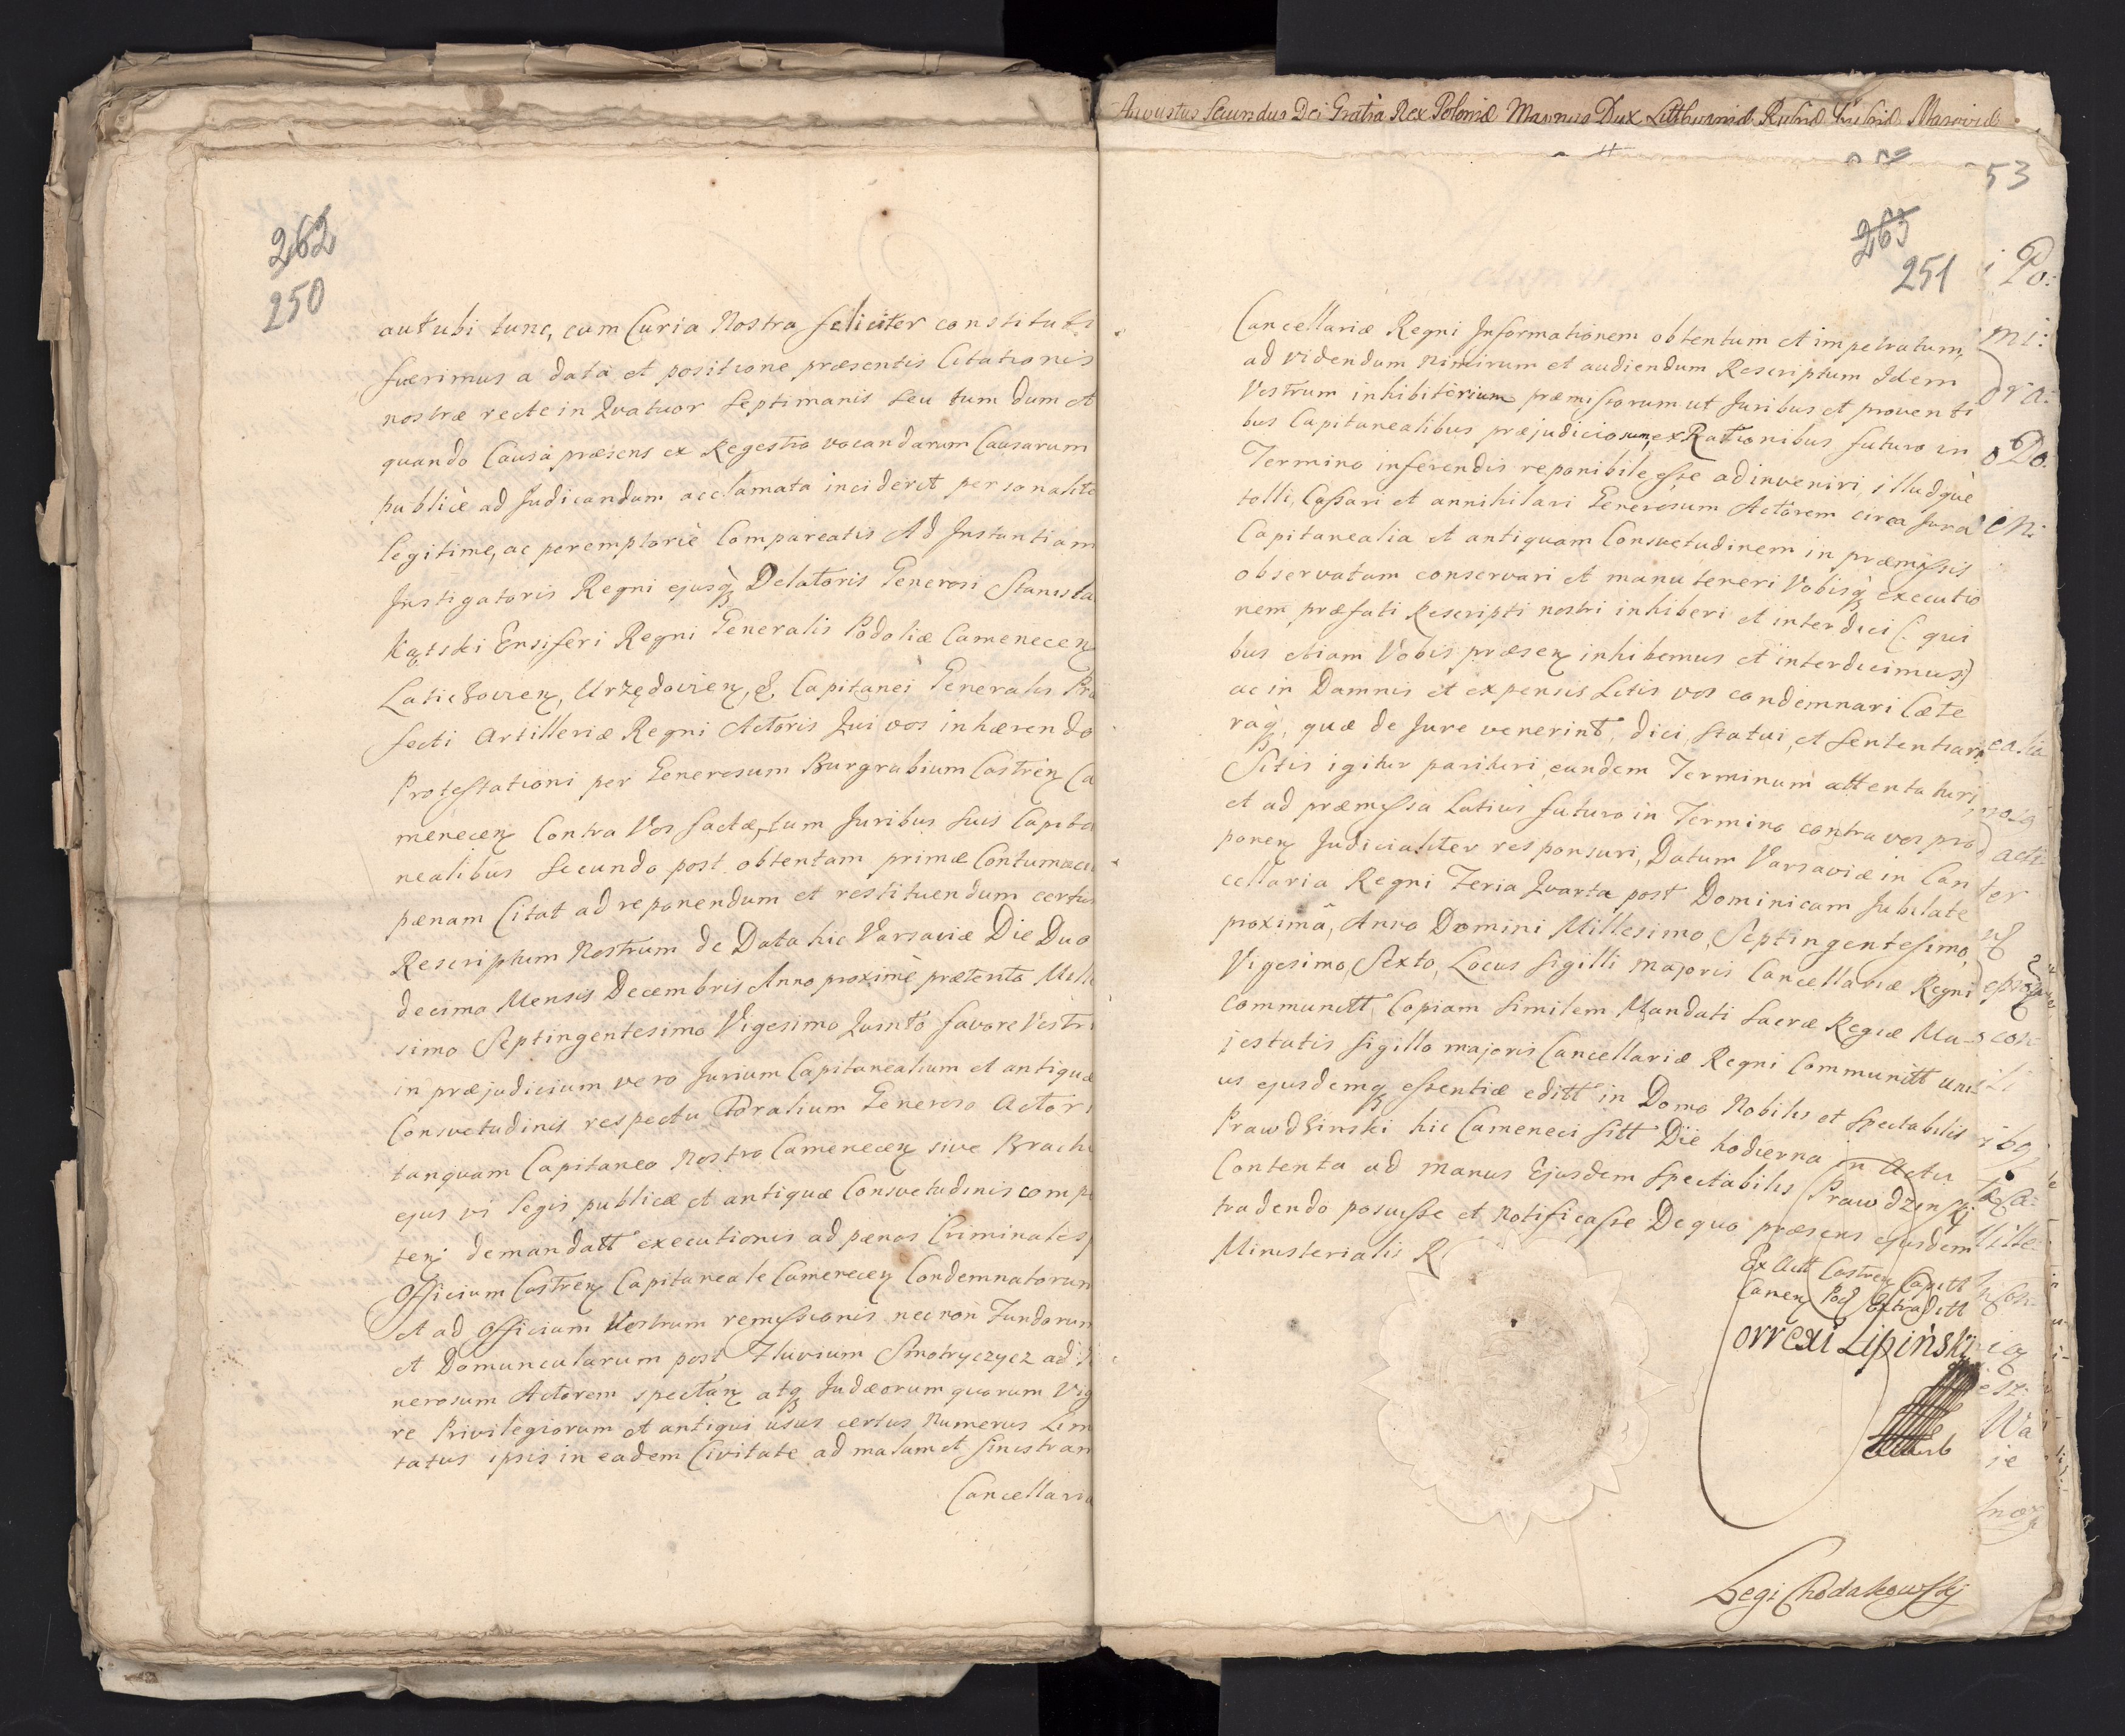 262
250
aut ubi tunc, cum Curia Nostra feliciter constituti
fuerimus a data et positione præsentis Citationis
nostræ recte in Quatuor Septimanis seu tum dum et
quando Causa præsens ex Regestro vocandarum Causarum
publicè ad Judicandum acclamata inciderit personalite
legitime, ac peremptoriè Compareatis Ad Instantiam
Instigatoris Regni ejusq Delatoris Generosi Stanisla
Kątski Ensiferi Regni Generalis Podoliæ Camenecen
Laticzovien, Urzędovien, &. Capitanei Generalis Præ
fecti Artilleriæ Regni Actoris Qui vos inhærendo
Protestationi per Generosum Burgrabium Castren Ca
menecen Contra Vos factæ, tum Juribus suis Capita
nealibus Secundo post obtentam primæ Contumacia
pænam Citat ad reponendum et restituendum certum
Rescriptum Nostrum de Data hic Varsaviæ Die Duo
decima Mensis Decembris Anno proximè prætento Mille
simo Septingentesimo Vigesimo Quinto favore Vestri
in præjudicium vero Jurium Capitanealium et antiquæ
Consvetudinis respectu Generoso Actori
tanquam Capitaneo Nostro Camenecen sive Brachi
ejus vi Legis publicæ et antiquæ Consvetudinis compe
ten demandatt executionis ad pænas Criminales
Officium Castren Capitaneale Camenecen Condemnatorum
et ad Officium Vestrum remissionis nec non Fundorum
et Domuncularum post Fluvium Smotryczycz ad
nerosum Actorem spectan atq Judæorum quorum Vig
re Privilegiorum et antiqui usus certus Numerus Lim
tatus ipsis in eadem Civitate ad malam et sinistram
Cancellaria
Augustus Secundus Dei Gratia Rex Poloniæ Magnus Dux Lithvaniæ Russiæ Masoviæ
53
263
251
Cancellariæ Regni Informationem obtentum et impetratum,
ad videndum nimirum et audiendum Rescriptum Idem
Vestrum inhibitorium præmissorum ut Juribus et proventi
bus Capitanealibus præjudiciosum, ex Rationibus futuro in
Termino inferendis reponibile esse adinveniri illudquè
tolli, Cassari et annihilari Generosum Actorem circa Jura
Capitanealia et antiquam Consvetudinem in præmissis
observatam conservari et manuteneri Vobisq executio
nem præfati Rescripti nostri inhiberi et interdici (: qui
bus etiam Vobis præsen inhibemus et interdicimus:)
ac in Damnis et expensis Litis vos condemnari Cæte
raq, quæ de Jure venerint, dici, statui, et sententiari
Sitis igitur parituri, eundem Terminum attentaturi,
et ad præmissa Latius futuro in Termino contra vos pro
ponen Judicialiter responsuri, Datum Varsaviæ in Can
cellaria Regni Feria Quarta post Dominicam Jubilate
proximâ, Anno Domini Millesimo, Septingentesimo,
Vigesimo Sexto, Locus Sigilli majoris Cancellariæ Regni
communitt, Copiam similem Mandati Sacræ Regiæ Ma-
jestatis sigillo majoris Cancellariæ Regni Communitt uni
us ejusdemq essentiæ editt in Domo Nobilis et Spectabilis
Prawdzinski hic Cameneci sitt Die hodierna in Actu
Contenta ad manus Ejusdem Spectabilis Prawdzinski
tradendo posuisse et Notificasse De quo præsens ejusdem
Ministerialis R
Ex Actt Castren Capitt
Camen Pod Extraditt
orrexi Lipiński
Legi Chodakowskj